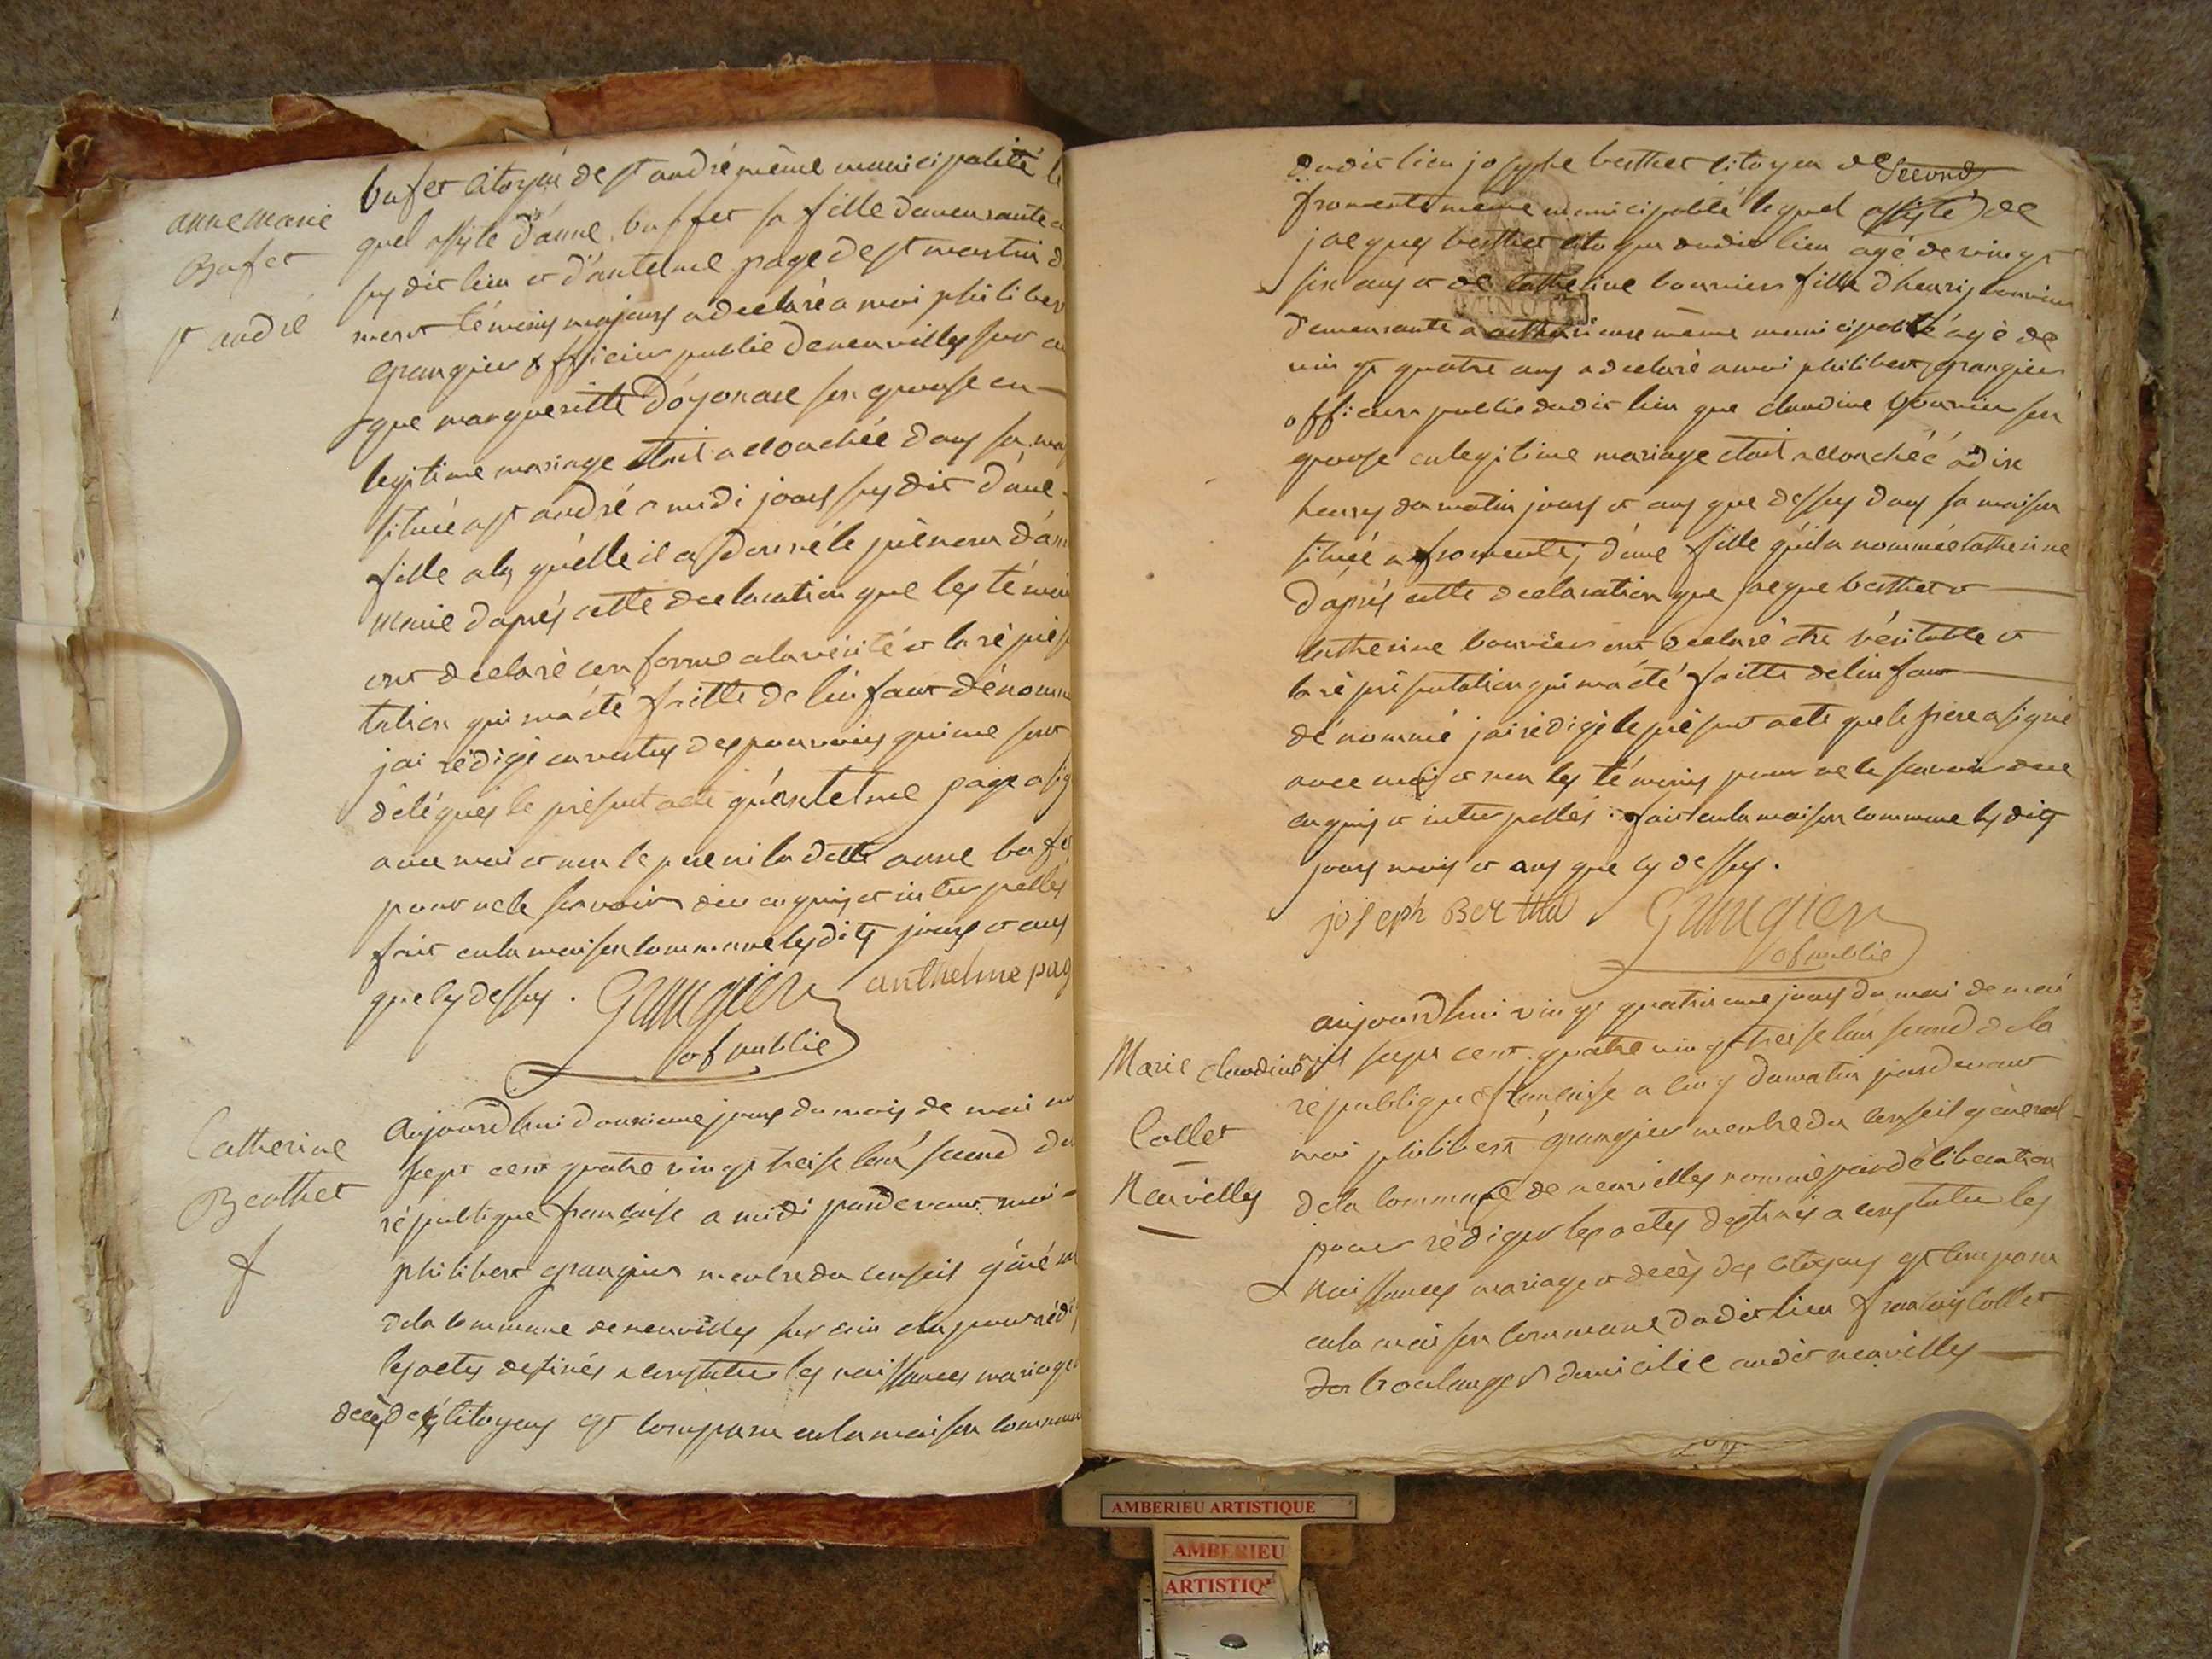 anne marie
Bufet
st andré
bufet citoyen de st andré même municipalité le
quel assisté d'anne buffet sa fille demeurante a
sydit lieu et d'antelme page de st martin d
mont témoins majeurs a declaré a moi philiber
grangier officier public de neuvilles sur a
que margueritte d'oyonace son epouse en
legitime mariage etoit accouchée dans sa mai
située a st andré a midi jours sydit d'une
fille a la quelle il a donné le prénom d'an
marie d'aprés cette declaration que les témoi
ont declaré conforme a la vérité et la réprése
tation qui m'a été faitte de l'enfant dénomm
j'ai rédigé en vertus des pouvoirs qui me sont
délégués le présent acte qu'antelme page a sig
avec moi et non le pere ni la ditte anne bufe
pour ne le savoir deu enquis et interpellés
fait en la maison commune lesdits jours et ans
que cy dessus . Grangier anthelme pag
of public
Catherine
Berthet
f
aujourdhui douzieme jours du mois de mai m
sept cent quatre vingt treise l'an second de
république francaise a midi pardevant moi
philibert grangier menbre du conseil géné
de la commune de neuvilles sur ain elu pour rédi
les actes destinés a constater les naissances mariage
décés des citoyens est comparu en la maison commu
dudit lieu josephe berthet citoyen de
fromente même municipalité lequel assisté de
jacques berthet citoyen dudit lieu agé de vingt
six ans et de catherine bouvier fille d'henrij bouvier
demeurante a même municipalité agé de
vingt quatre ans a declaré a moi philibert grangier
officier public dudit lieu que claudine bouvier son
epouse en legitime mariage etoit accouchéé a dix
heures du matin jours et ans que dessus dans sa maison
située a fromente, d'une fille qu'il a nommée catherine
d'aprés cette declaration que jacque berthet et
catherine bouvier ont declaré etre véritable et
la réprésentation qui m'a été faitte de l'enfant
dénommé j'ai rédigé le présent acte que le pere a signé
avec moi et non les témoins pour ne le savoir deu
enquis et interpellés . fait en la maison commune les dits
jours mois et ans que cy dessus .
joseph Berthet Grangier
of public
Marie claudine
Collet
Neuvilles
aujourdhui vingt quatrieme jours du moi de mai
mil sept cent quatre vingt treise l'an second de la
république francaise a cinq du matin pardevant
moi philibert grangier menbre du conseil géneral
de la commune de neuvilles nommé par délibération
pour rédiger les actes destinés a constater les
naissances mariage et décès des citoyens est comparu
en la maison commune dudit lieu francois collet
boulanger domicilié audit neuvilles
AMBERIEU ARTISTIQUE
AMBERIEU
ARTISTIQ